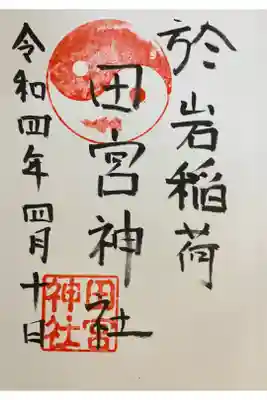 於岩稲荷
田宮神社
令和四年 四月十日
田宮
神社